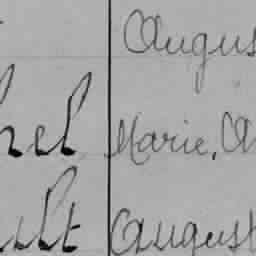 Augus
hel Marie, A
ult August